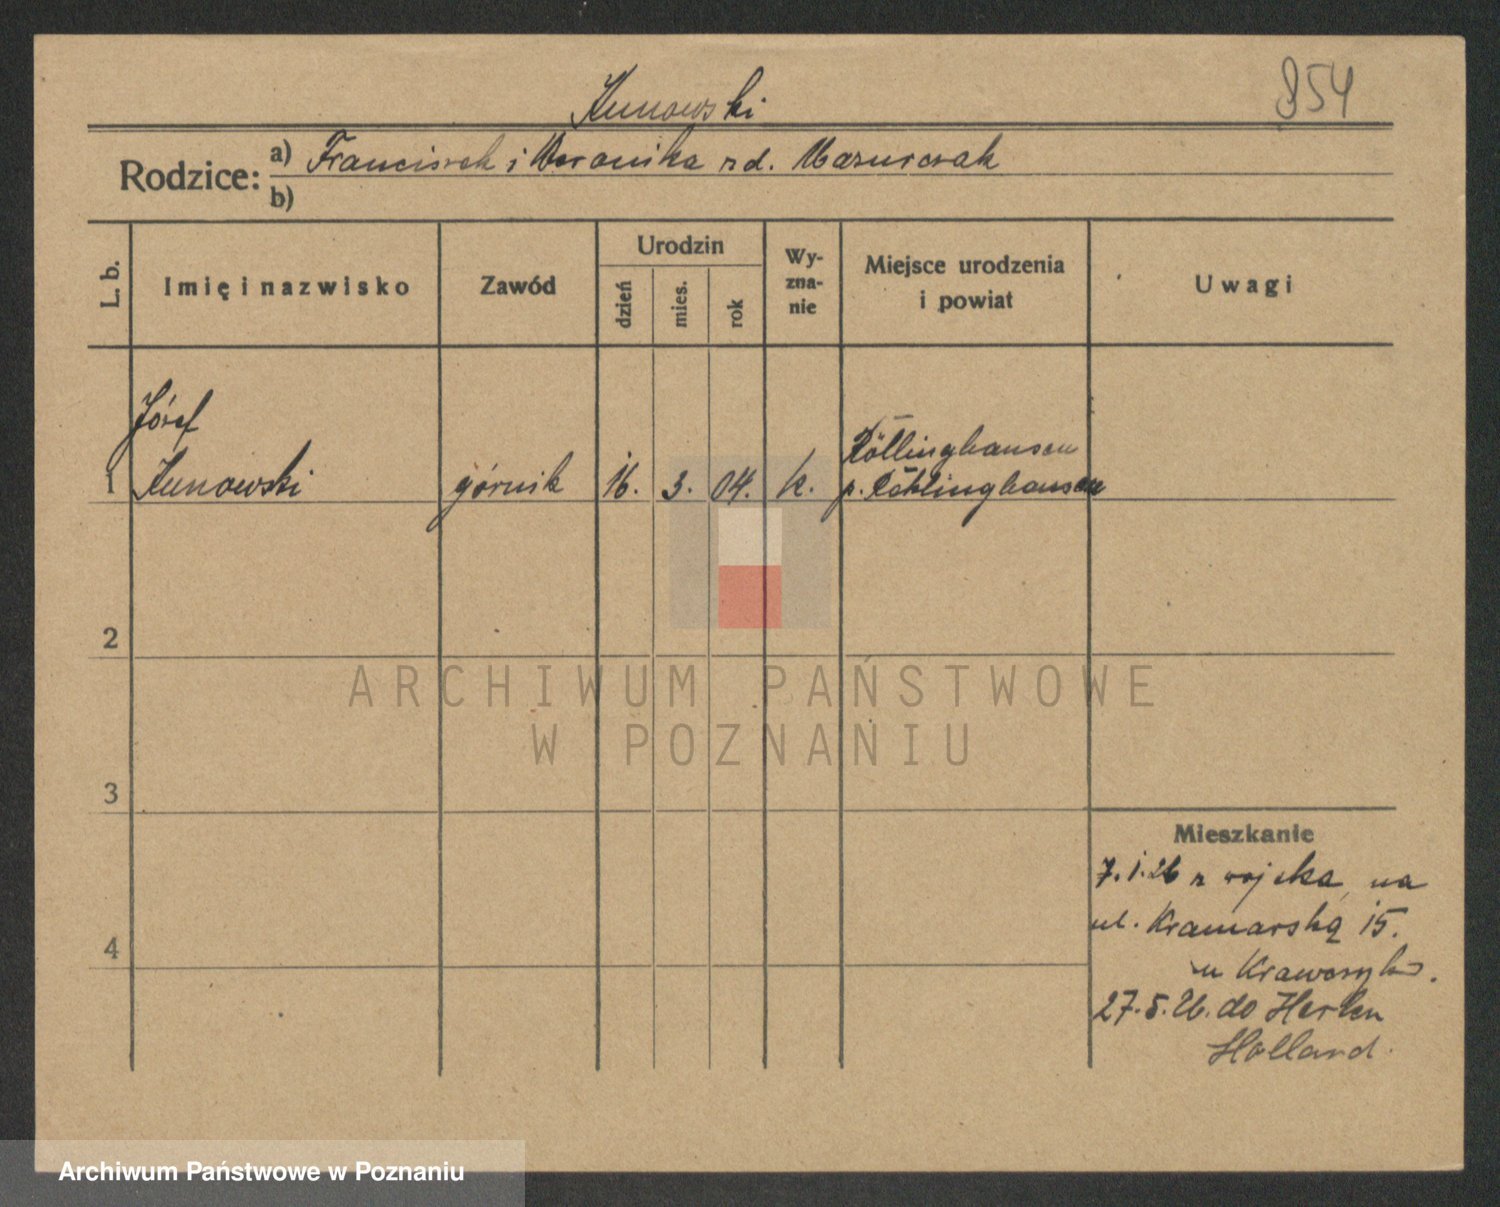 854
Kunowski
Rodzice: a) Franciszek i Weronika zd. Mazurczak
b)
L. b.
Imię i nazwisko
Zawód
Urodzin
dzień
mies.
rok
Wy-
zna-
nie
Miejsce urodzenia
i powiat
Uwagi
Józef
1 Kunowski górnik 16. 3. 04. k. Röllinghausen
p. Röhlinghausen
2
3
4
Mieszkanie
7.1.26 z wojska, na
ul. Kramarską 15.
u Krawczyk
27.5.26. do Herlen
Holland.
ARCHIWUM PAŃSTWOWE
W POZNANIU
Archiwum Państwowe w Poznaniu